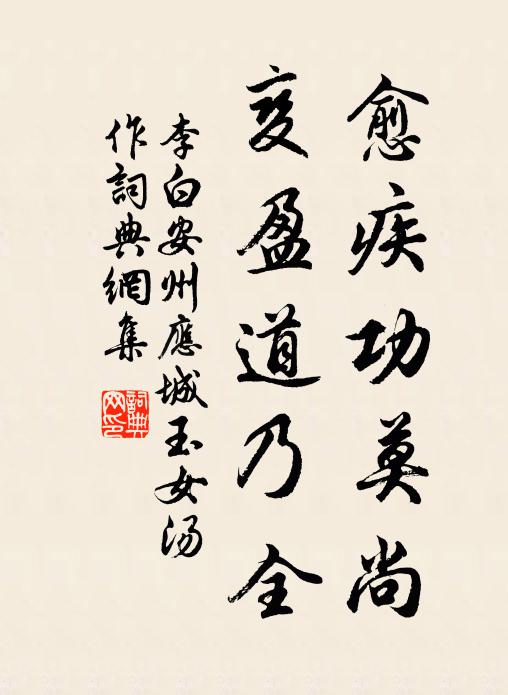 愈疾功莫尚
变盈道乃全
李白安州應城玉女湯
作詞典網集
詞典
网印